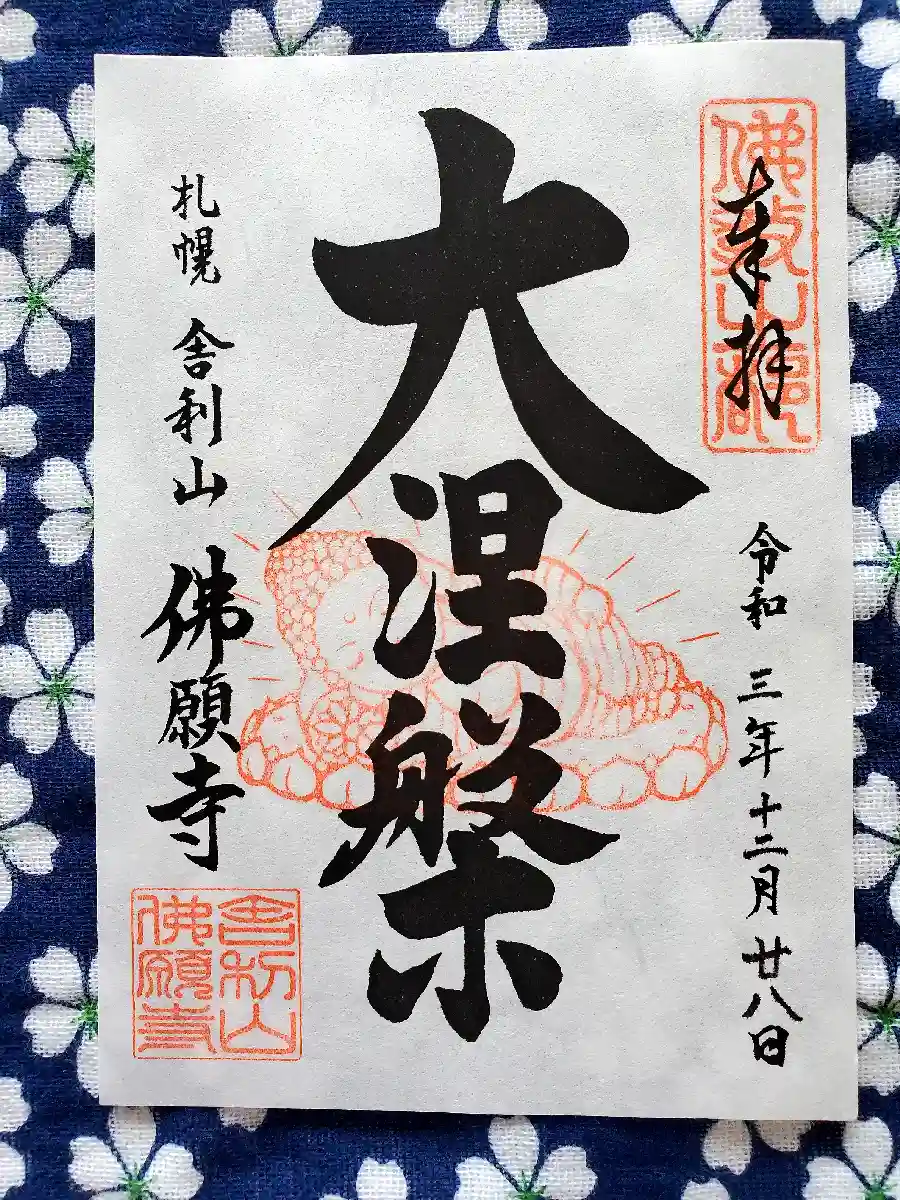 奉拝
佛教山郷
令和三年十二月廿八日
大涅槃
札幌 舎利山 佛願寺
舎利山
佛願寺